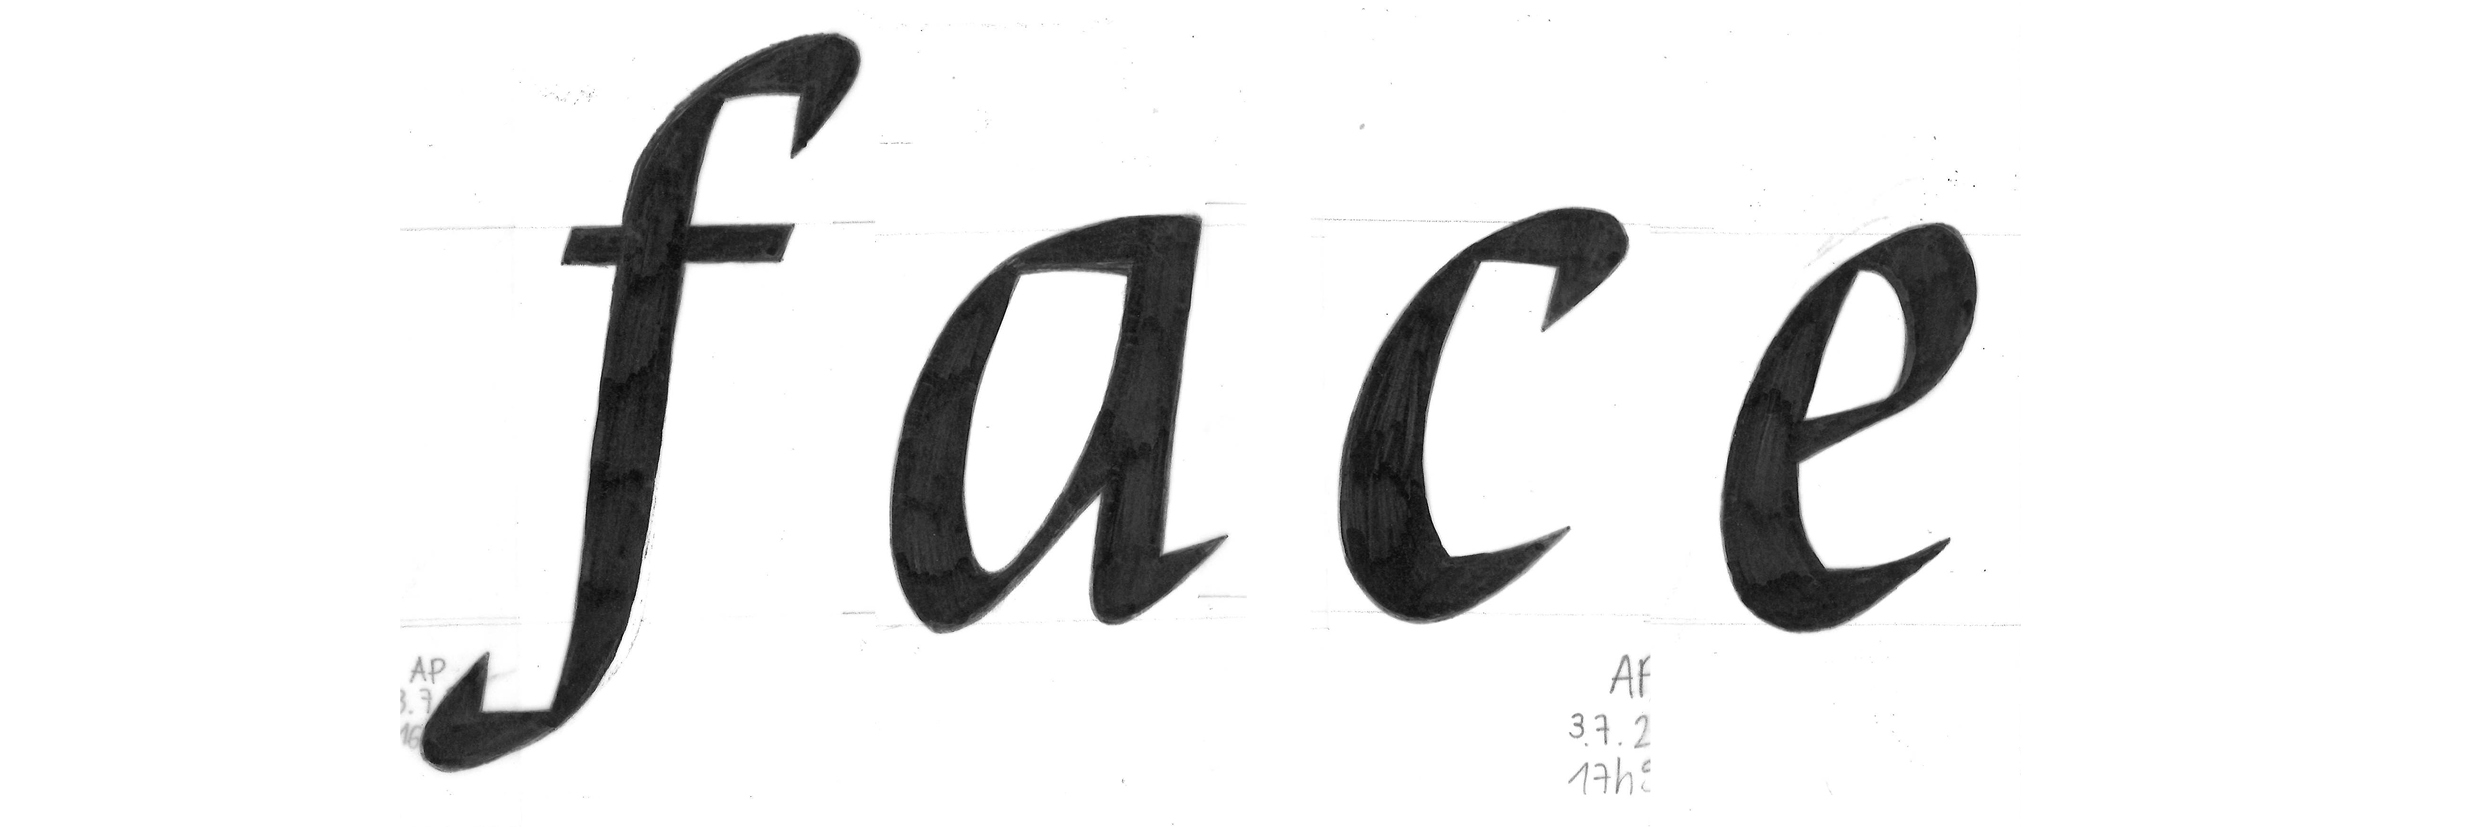 face
AP
3.7
16
3.7.2
17h